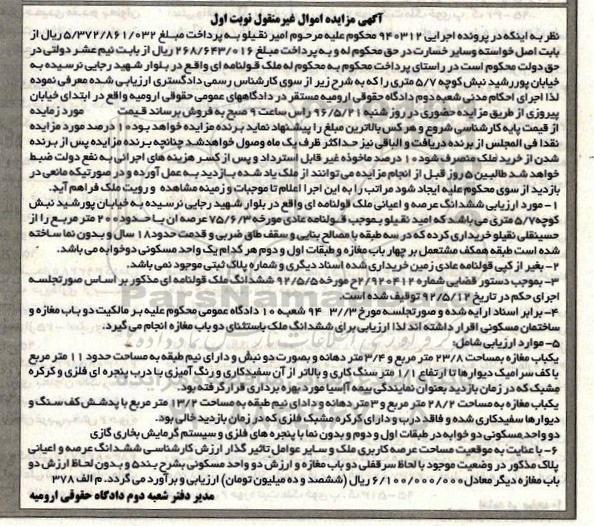 آگهی مزایده اموال غیرمنقول نوبت اول
نظر به اینکه در پرونده اجرایی ۹۴۰۳۱۲ محکوم علیه مرحوم امیر نقیلو به پرداخت مبلغ ۵/۳۷۲/۸۶۱/۰۳۲ ریال از
بابت اصل خواسته وسایر خسارت در حق محکوم له و به پرداخت مبلغ ۲۶۸/۶۴۳/۰۱۶ ریال از بابت نیم عشر دولتی در
حق دولت محکوم است در راستای پرداخت محکوم به محکوم له ملک قولنامه ای واقع در بلوار شهید رجایی نرسیده به
خیابان پوررشید نبش کوچه ۵/۷ متری را که به شرح زیر از سوی کارشناس رسمی دادگستری ارزیابی شده معرفی نموده
لذا اجرای احکام مدنی شعبه دوم دادگاه حقوقی ارومیه مستقر در دادگاههای عمومی حقوقی ارومیه واقع در ابتدای خیابان
پیروزی از طریق مزایده حضوری در روز شنبه ۹۶/۵/۲۱ راس ساعت ۹ صبح به فروش برساند قیمت مورد مزایده
از قیمت پایه کارشناسی شروع و هر کس بالاترین مبلغ را پیشنهاد نماید برنده مزایده خواهد بود ۱۰ درصد مورد مزایده
نقدا فی المجلس از برنده دریافت و الباقی نیز حداکثر ظرف یک ماه وصول خواهد شد چنانچه برنده مزایده پس از برنده
شدن از خرید ملک منصرف شود ۱۰ درصد ماخوذه غیر قابل استرداد و پس از کسر هزینه های اجرائی به نفع دولت ضبط
خواهد شد طالبین ۵ روز قبل از انجام مزایده می توانند از ملک یاد شده بازدید به عمل آورده و در صورتیکه مانعی در
بازدید از سوی محکوم علیه ایجاد شود مراتب را به این اجرا اعلام تا موجبات و زمینه مشاهده و رویت ملک فراهم آید.
۱- مورد ارزیابی ششدانگ عرصه و اعیانی ملک قولنامه ای واقع در بلوار شهید رجایی نرسیده به خیابان پورشید نبش
کوچه ۵/۷ متری می باشد که امید نقیلو بموجب قولنامه عادی مورخه ۷۵/۶/۳ عرصه ان با حدود ۲۰۰ متر مربع را از
حسینقلی نقیلو خریداری کرده که در سه طبقه با مصالح بنایی و سقف طاق ضربی و قدمت حدود ۱۸ سال و بدون نما ساخته
شده است طبقه همکف مشتمل بر چهار باب مغازه و طبقات اول و دوم هر کدام یک واحد مسکونی دوخوابه می باشد.
۲- بغیر از کپی قولنامه عادی زمین خریداری شده اسناد دیگری و شماره پلاک ثبتی موجود نمی باشد.
۳- بموجب دستور قضایی شماره ۹۲۰۴۱۲/ح۲ مورخه ۹۲/۵/۵ ششدانگ ملک قولنامه ای مذکور بر اساس صورتجلسه
اجرای حکم در تاریخ ۹۲/۵/۱۲ توقیف شده است.
۴- برابر اسناد ارایه شده و صورتجلسه مورخ ۹۴/۳/۳ شعبه ۱۰ دادگاه عمومی محکوم علیه بر مالکیت دو باب مغازه و
ساختمان مسکونی اقرار داشته اند لذا ارزیابی برای ششدانگ ملک باستثنای دو باب مغازه انجام می گیرد.
۵- موارد ارزیابی شامل:
یکباب مغازه بمساحت ۲۳/۸ متر مربع و ۳/۴ متر دهانه و بصورت دو نبش و دارای نیم طبقه به مساحت حدود ۱۱ متر مربع
با کف سرامیک دیوارها تا ارتفاع ۱/۱ متر سنگ کاری و بالاتر از آن سفیدکاری و رنگ آمیزی با درب پنجره ای فلزی و کرکره
مشبک که در زمان بازدید بعنوان نمایندگی بیمه آسیا مورد بهره برداری قرار گرفته بود.
یکباب مغازه به مساحت ۲۸/۲ متر مربع و ۳ متر دهانه و دارای نیم طبقه به مساحت ۱۳/۲ متر مربع با پدشش کف سنگ و
دیوارها سفیدکاری شده و فاقد درب و دارای کرکره مشبک فلزی که در زمان بازدید خالی بود.
دو واحد مسکونی دو خوابه در طبقات اول و دوم و بدون نما با پنجره های فلزی و سیستم گرمایش بخاری گازی
۶- با عنایت به موقعیت مساحت عرصه کاربری ملک و سایر عوامل تاثیر گذار ارزش کارشناسی ششدانگ عرصه و اعیانی
پلاک مذکور در وضعیت موجود با لحاظ سرقفلی دو باب مغازه و ارزش دو واحد مسکونی بشرح بند ۵ و بدون لحاظ ارزش دو
باب مغازه دیگر معادل ۶/۱۰۰/۰۰۰/۰۰۰ ریال (ششصد و ده میلیون تومان) ارزیابی و برآورد می گردد. م الف ۳۷۸
مدیر دفتر شعبه دوم دادگاه حقوقی ارومیه